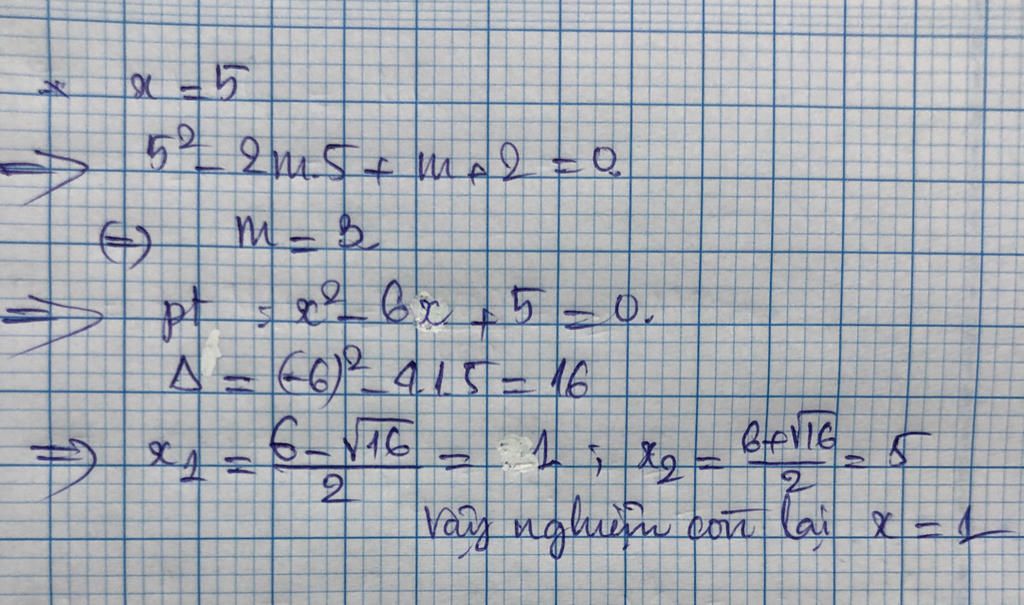 * x = 5
=> 5² - 2m.5 + m + 2 = 0.
(=) m = 3
=> pt : x² - 6x + 5 = 0.
Δ = (-6)² - 4.1.5 = 16
=> x₁ = (6 - √16)/2 = 1 ; x₂ = (6 + √16)/2 = 5
Vậy nghiệm còn lại x = 1